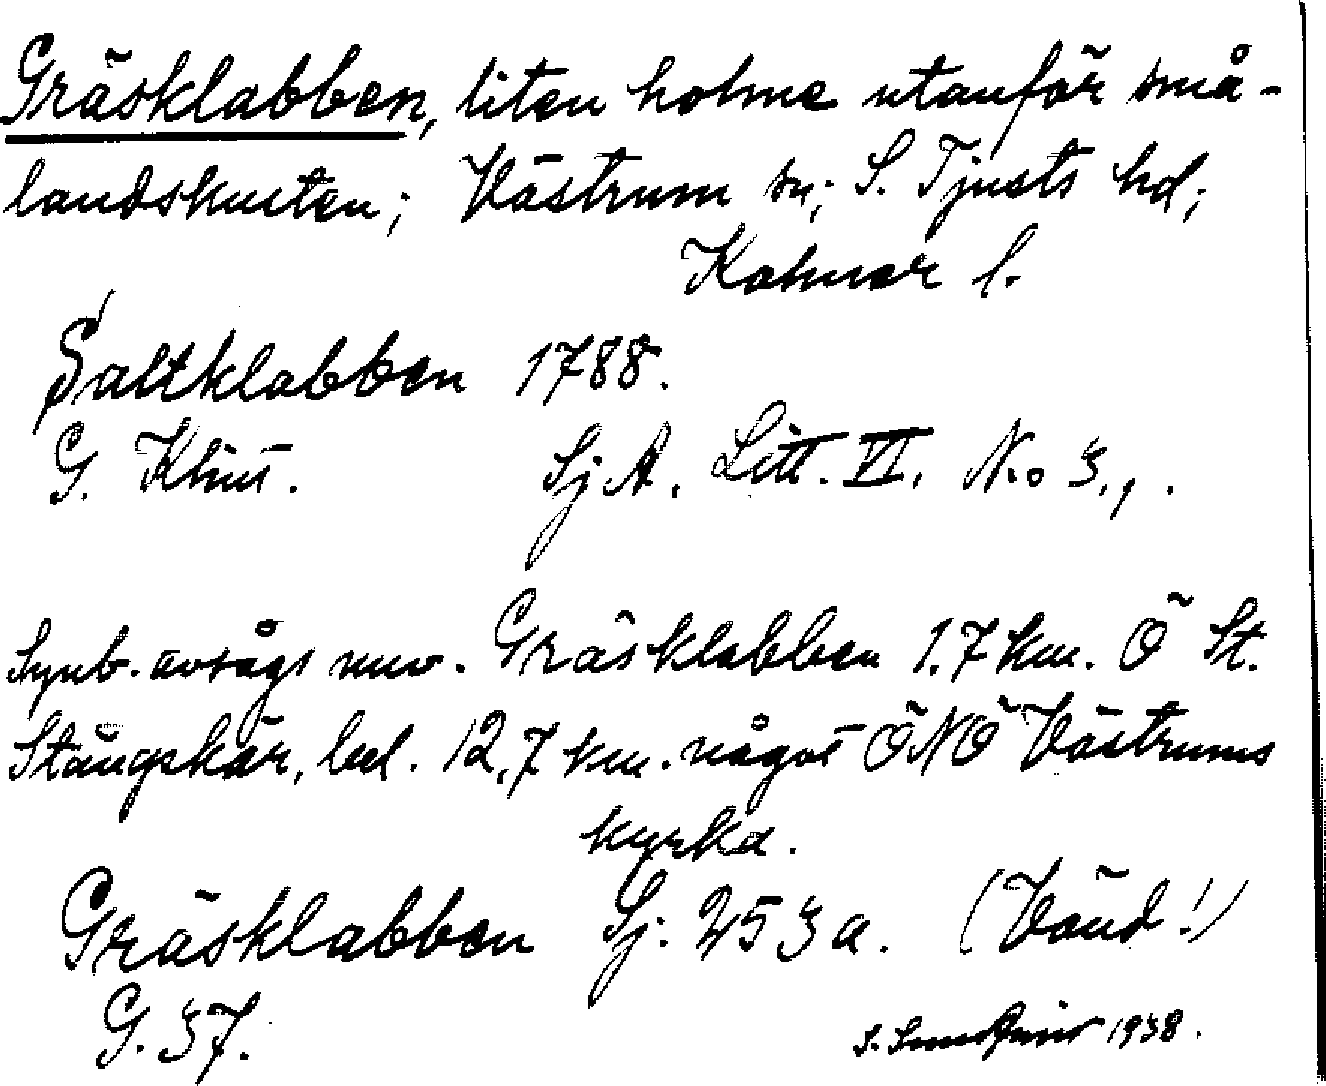 Gräsklabben, liten holme utanför små-
landskusten; Västrum sn; S. Tjusts hd;
Kalmar l.
Saltklabben 1788.
G. Klint. Sj A. Litt. VI. No 3.,.
Synb. avsågs nuv. Gräsklabben 1.7 km. Ö St.
Stångskär, bel. 12,7 km. något ÖNÖ Västrums
kyrka.
Gräsklabben Sj. 253a. (Vänd!)
G. 37.
S. 1938.